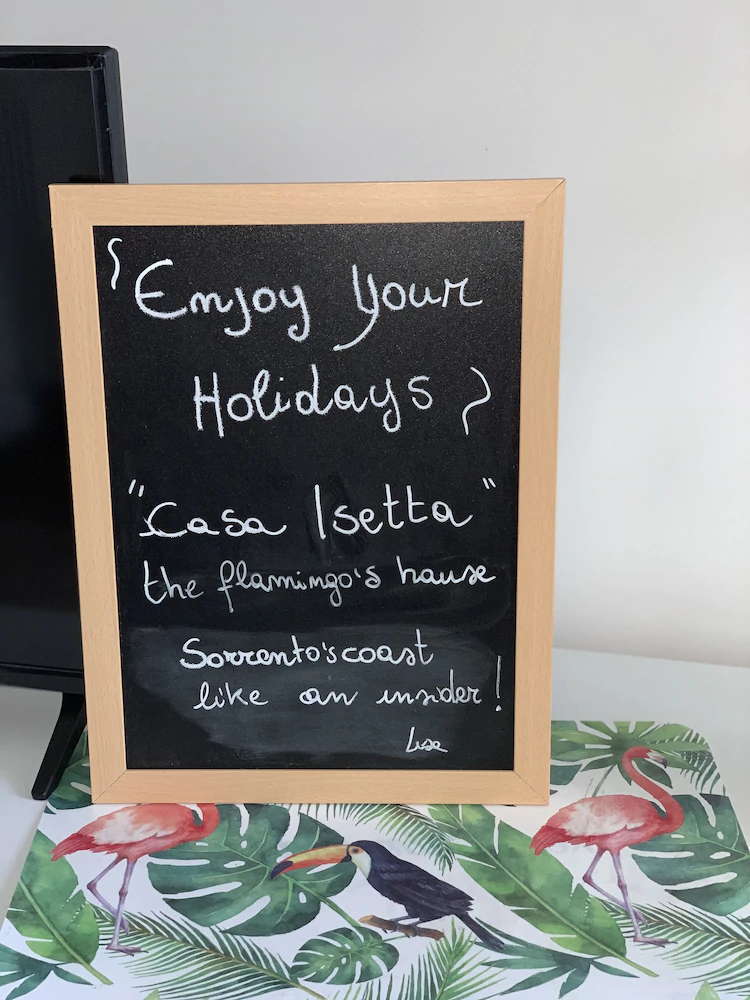 { Enjoy Your
Holidays }
"Casa Isetta"
the flamingo's hause
Sorrento's coast
like an insider!
Lisa